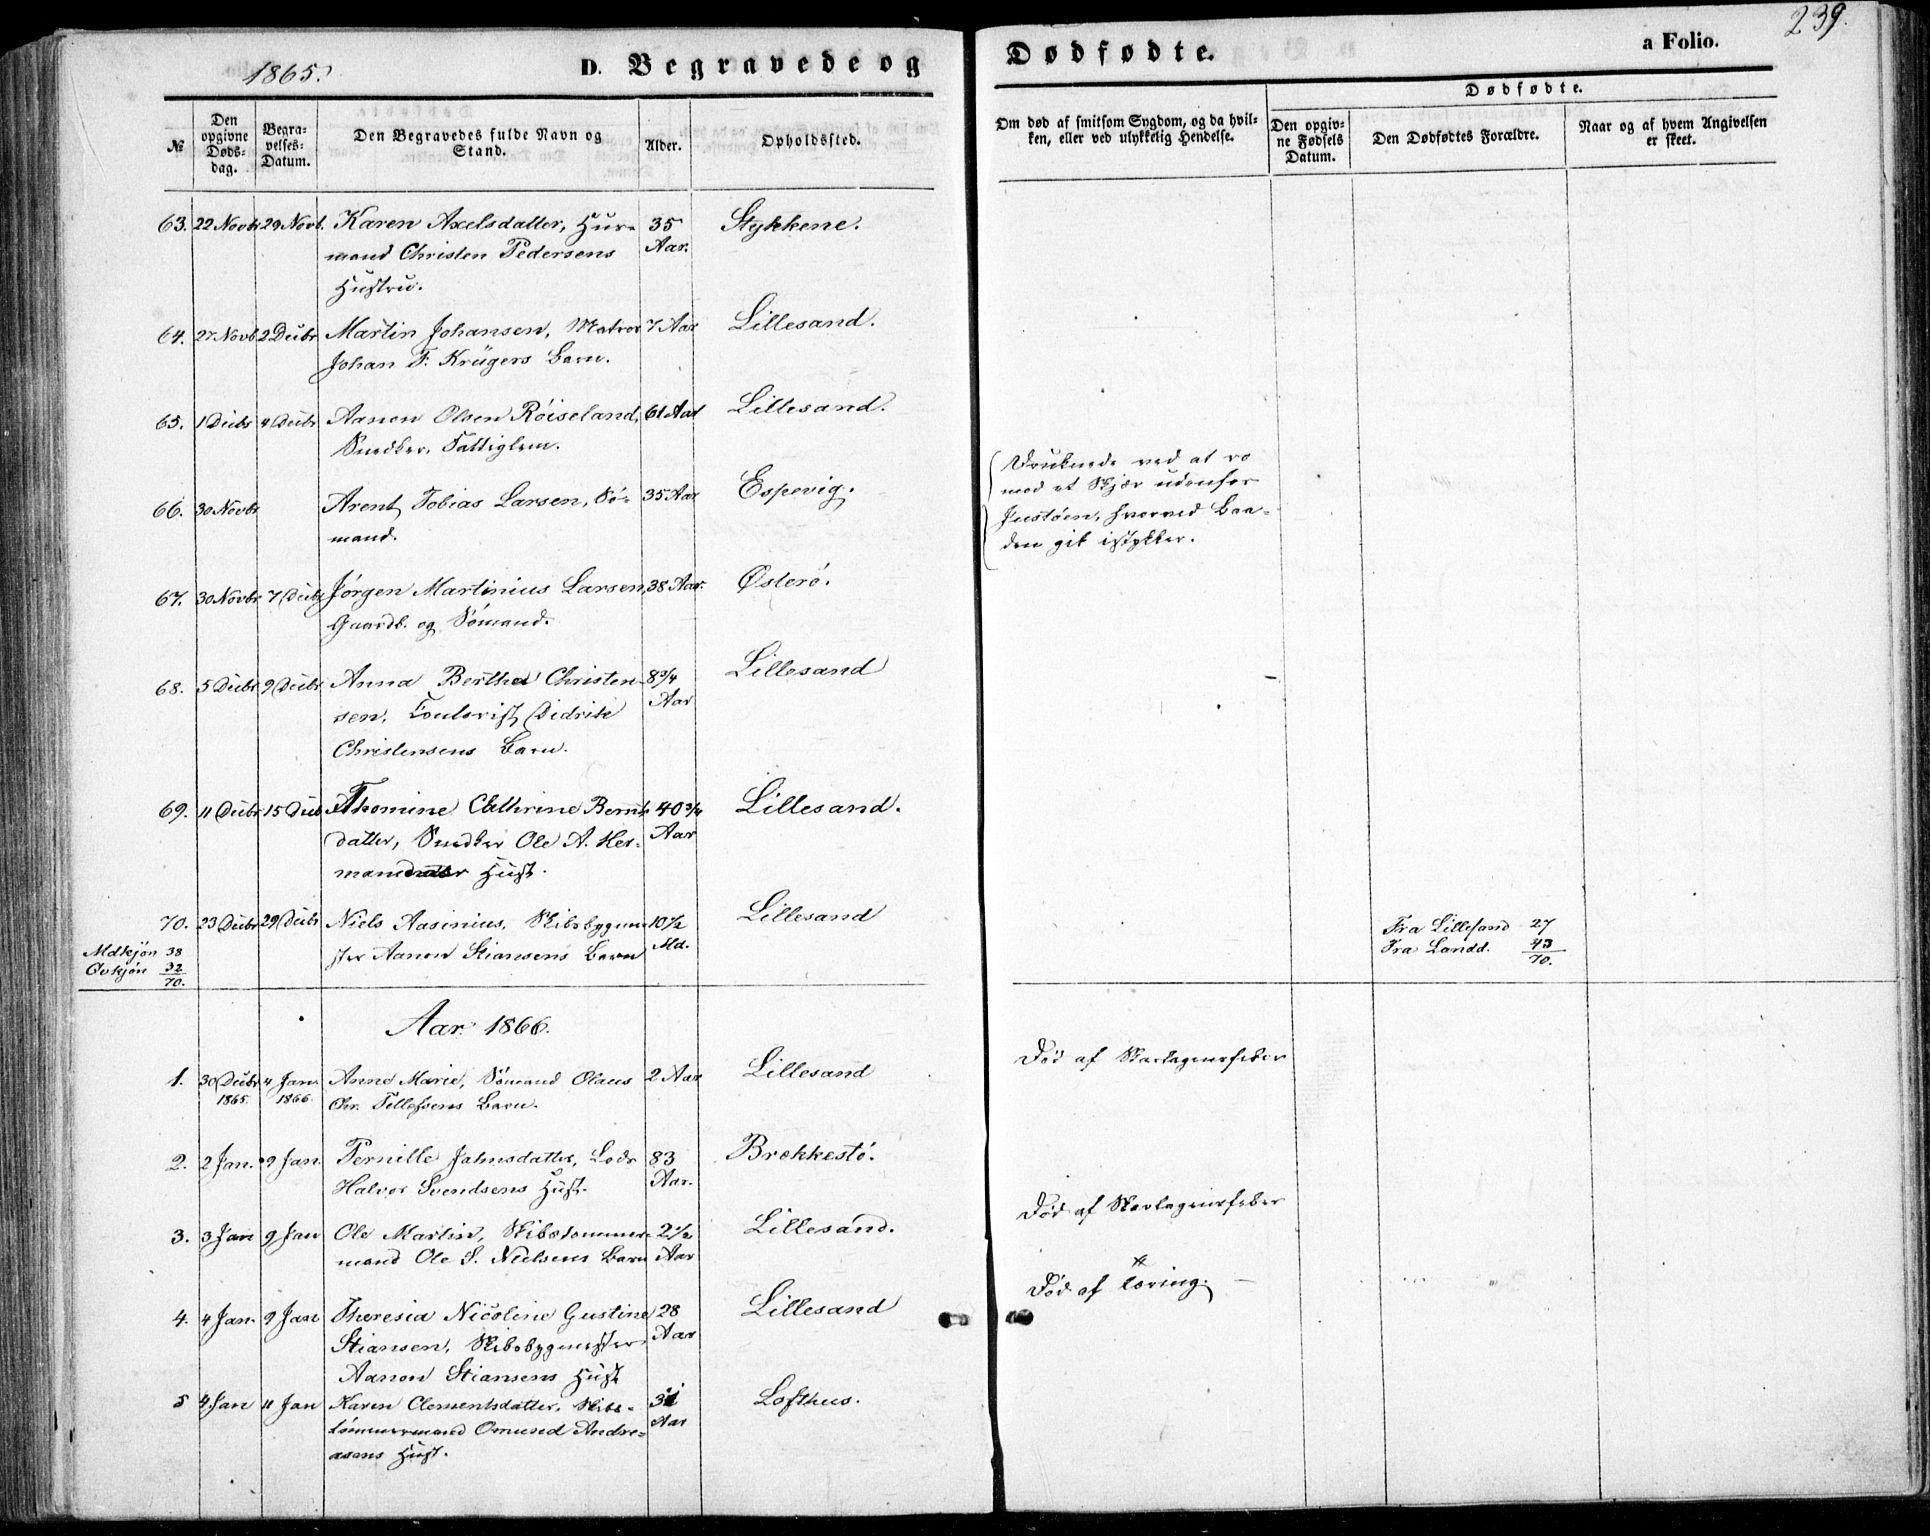 1865.
D. Begravede og
Dødfødte.
a Folio.
239.
№
Den opgivne Dødsdag.
Begravelses-Datum.
Den Begravedes fulde Navn og Stand.
Alder.
Opholdssted.
Om død af smitsom Sygdom, og da hvilken, eller ved ulykkelig Hendelse.
Dødfødte.
Den opgivne Fødsels Datum.
Den Dødfødtes Forældre.
Naar og af hvem Angivelsen er skeet.
63. 22 Novbr 29 Novb. Karen Axelsdatter, Huus- 35 Stykkene.
mand Christen Pedersens Aar.
Hustru.
64. 27 Novb 2 Decbr Martin Johansen, Matros 7 Aar Lillesand.
Johan F. Krügers Barn.
65. 1 Decbr 4 Decbr Aanon Olsen Røiseland, 61 Aar Lillesand.
Snedker, Fattiglem.
66. 30 Novbr Arent Tobias Larsen, Sø- 35 Aar Espevig.
mand.
Druknede ved at ro
mod et Skjær udenfor
Justøen, hvorved Baa-
den gik istykker.
67. 30 Novbr 7 Decbr Jørgen Martinius Larsen, 38 Aar. Østerø.
Gaardb. og Sømand.
68. 5 Decbr 9 Decbr Anna Bertha Christen- 8 3/4 Lillesand
sen, Didrik Aar
Christensens Barn.
69. 11 Decbr 15 Decb Thomine Cathrine Bernts 40 3/4 Lillesand.
datter, Snedker Ole A. Her- Aar
Hust.
70. 23 Decbr 29 Decbr Niels Aasinius, Skibsbygme- 10 1/2 Lillesand
ster Aanon Stiansens Barn Md.
Mdkjøn 38
Qvkjøn 32
70.
Fra Lillesand 27
Fra Landd. 43
70.
Aar 1866.
1. 30 Decbr 4 Jan. Anne Marie, Sømand Olaus 2 Aar Lillesand Død af Skarlagensfeber
1865. 1866. Chr. Tellefsens Barn.
2. 2 Jan. 9 Jan. Pernille Jahnsdatter, Lods 83 Brekkestø.
Halvor Svendsens Hust. Aar.
3. 3 Jan 9 Jan Ole Martin, Skibstømmer- 2 1/2 Lillesand. Død af Skarlagensfeber
mand Ole S. Nielsens Barn Aar
4. 4 Jan. 9 Jan Theresia Nicoline Gustine 28 Lillesand Død af Tæring.
Stiansen, Skibsbygmester Aar
Aanon Stiansens Hust
5 4 Jan 11 Jan Karen Clementsdatter, Skibs- 31 Lofthus.
tømmermand Omund Andre- Aar
asens Hust.